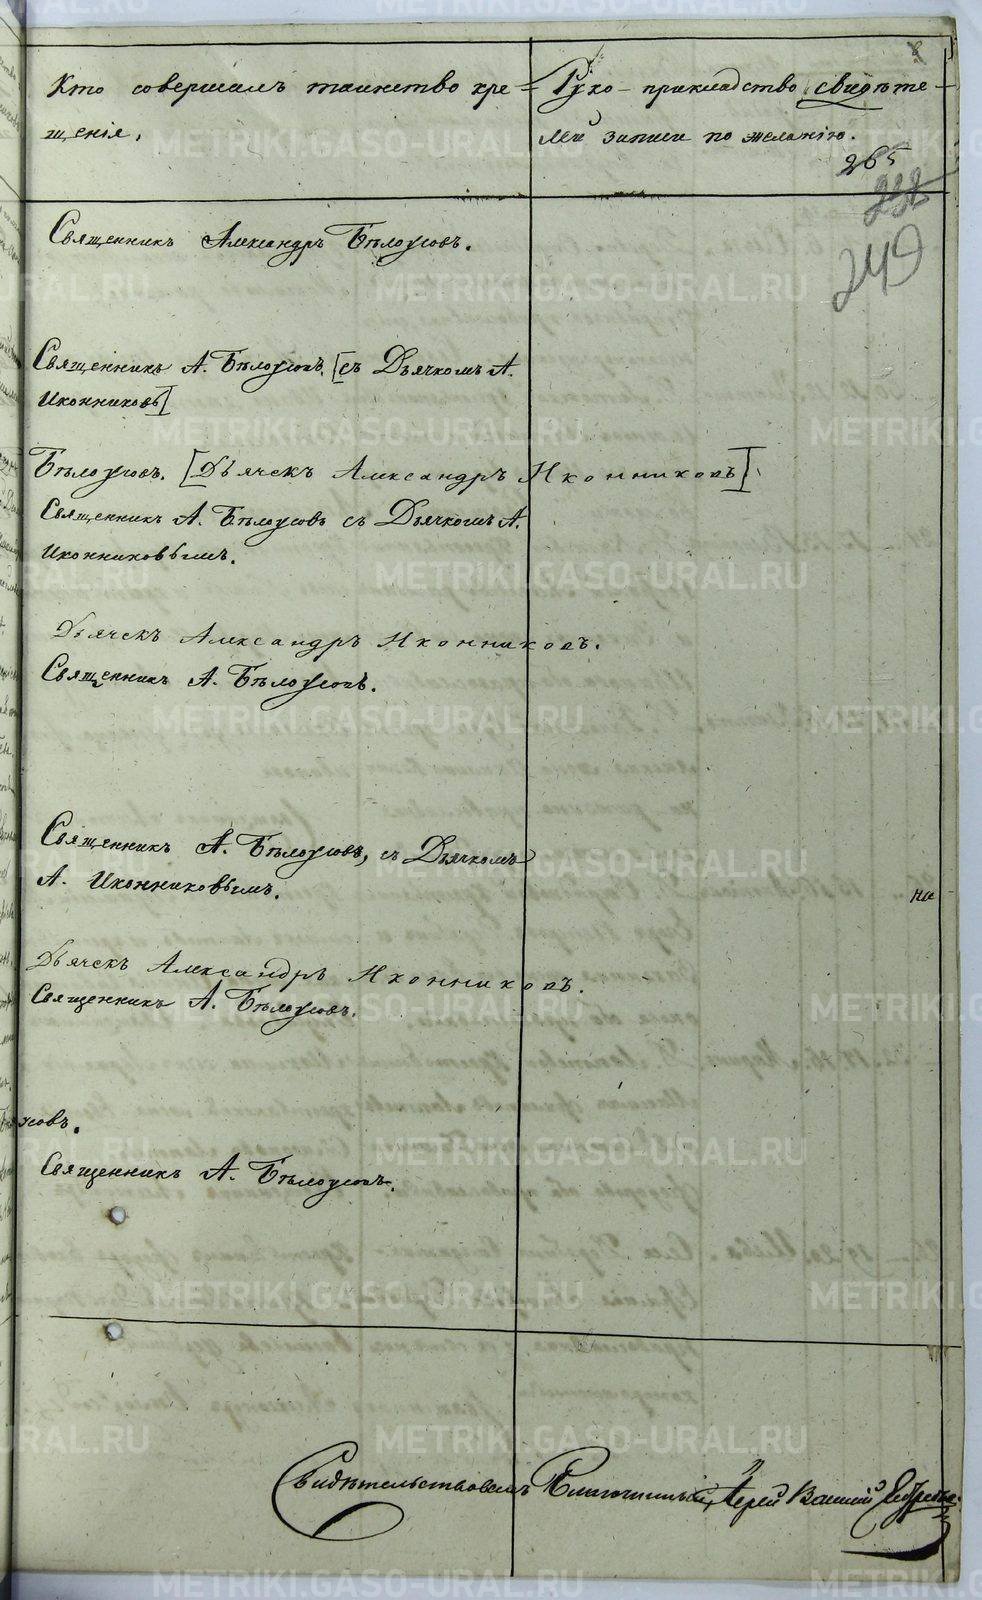 8
Кто совершалъ таинство кре-
щенія.
Руко-прикладство свидѣте-
лей записи по желанію.
265
249
Священникъ Александръ Бѣлоусовъ.
Священникъ А. Бѣлоусовъ. [съ Дьячкомъ А.
Иконниковъ]
Бѣлоусовъ. [Дьячекъ Александръ Иконниковъ]
Священникъ А. Бѣлоусовъ съ Дьячкомъ А.
Иконниковымъ.
Дьячекъ Александръ Иконниковъ.
Священникъ А. Бѣлоусовъ.
Священникъ А. Бѣлоусовъ, съ Дьячкомъ
А. Иконниковымъ.
Дьячекъ Александръ Иконниковъ.
Священникъ А. Бѣлоусовъ.
усовъ.
Священникъ А. Бѣлоусовъ.
Свидѣтельствовалъ Благочинный, Іерей
METRIKI.GASO-URAL.RU